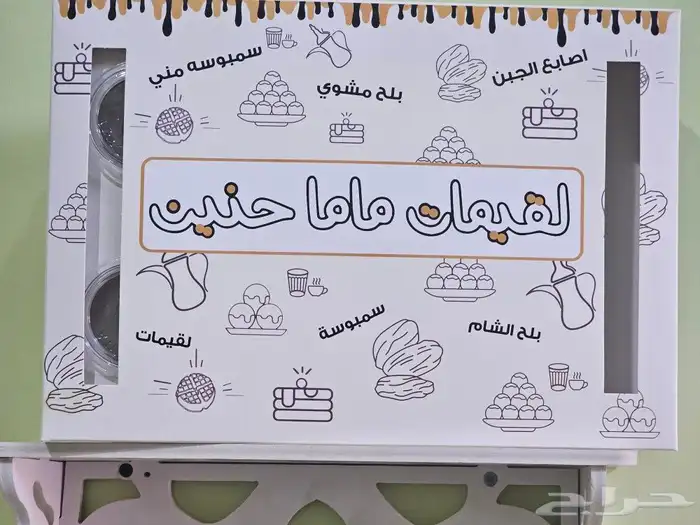 سمبوسه مني
بلح مشوي
اصابع الجبن
لقيمات ماما حنين
لقيمات
سمبوسة
بلح الشام
حراج